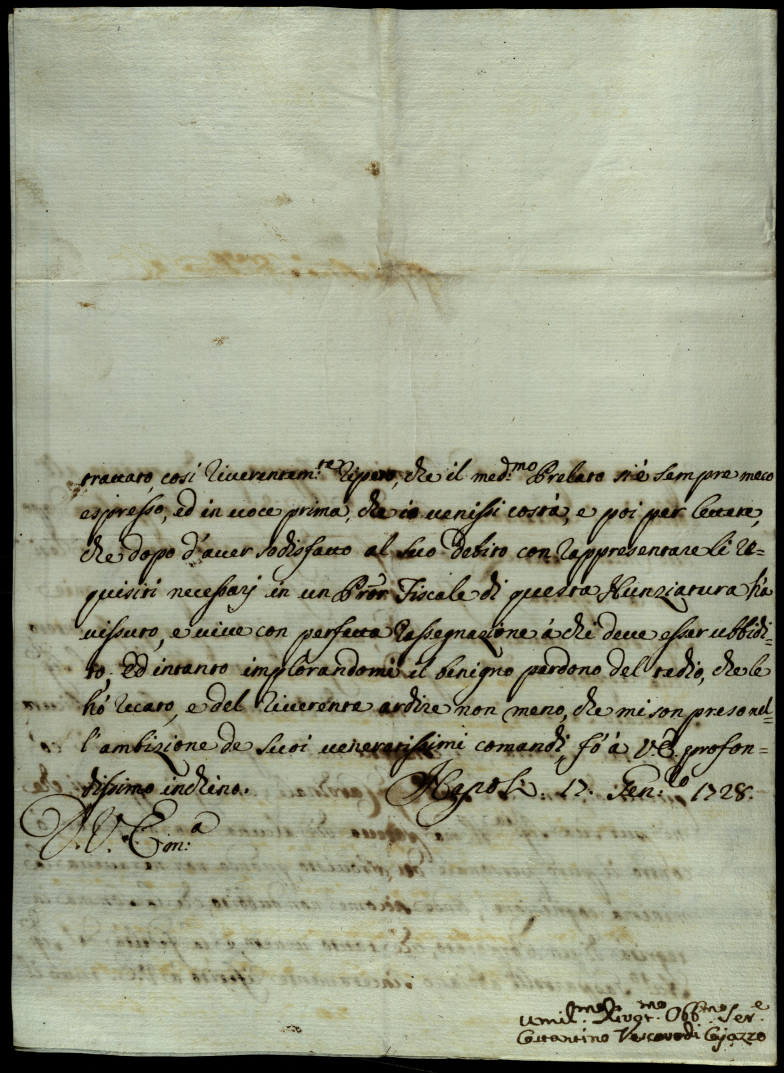 trattato, così riverentem.te ripeto, che il med.mo Prelato si è sempre meco
espresso, ed in voce prima, che io venissi costà, e poi per lettere,
che dopo d'aver sodisfatto al suo debito con rappresentare li re=
quisiti necessarj in un Pror Fiscale di questa Nunziatura hà
vissuto, e vive con perfetta rassegnazione à chi deve esser ubbidi=
to; Ed intanto implorandomi il benigno perdono del tedio, che le
hò recato, e del riverente ardire non meno, che mi son preso nel=
l'ambizione de suoi veneratissimi comandi, fò à V.E. profon=
dissimo inchino. Napoli. 17. Gen.ro 1728.
D. V. Em.a
Umil.mo Divot.mo Obb.mo Ser.e
Costantino Vescovo di Cajazzo